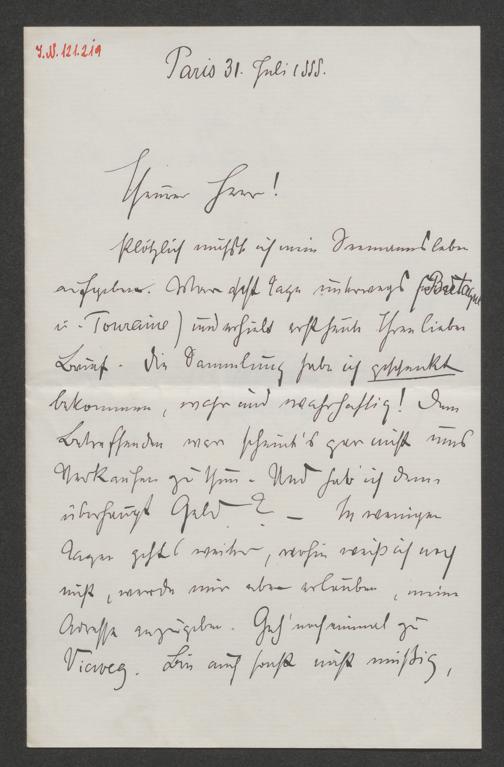 I.N. 121.219
Paris 31. Juli 1888.
Theurer Herr!
Plötzlich mußt ich mein Seemannsleben
aufgeben. War acht Tage unterwegs (Bretagne
u. Touraine) und erhielt erst heute Ihren lieben
Brief. Die Sammlung habe ich geschenkt
bekommen, wahr und wahrhaftig! Dem
Betreffenden war scheint's gar nicht ums
Verkaufen zu thun. Und hab' ich denn
überhaupt Geld? – In wenigen
Tagen geht's weiter, wohin weiß ich noch
nicht, werde mir aber erlauben, meine
Adresse anzugeben. Geh' noch einmal zu
Vieweg. Bin auch sonst nicht müßig,